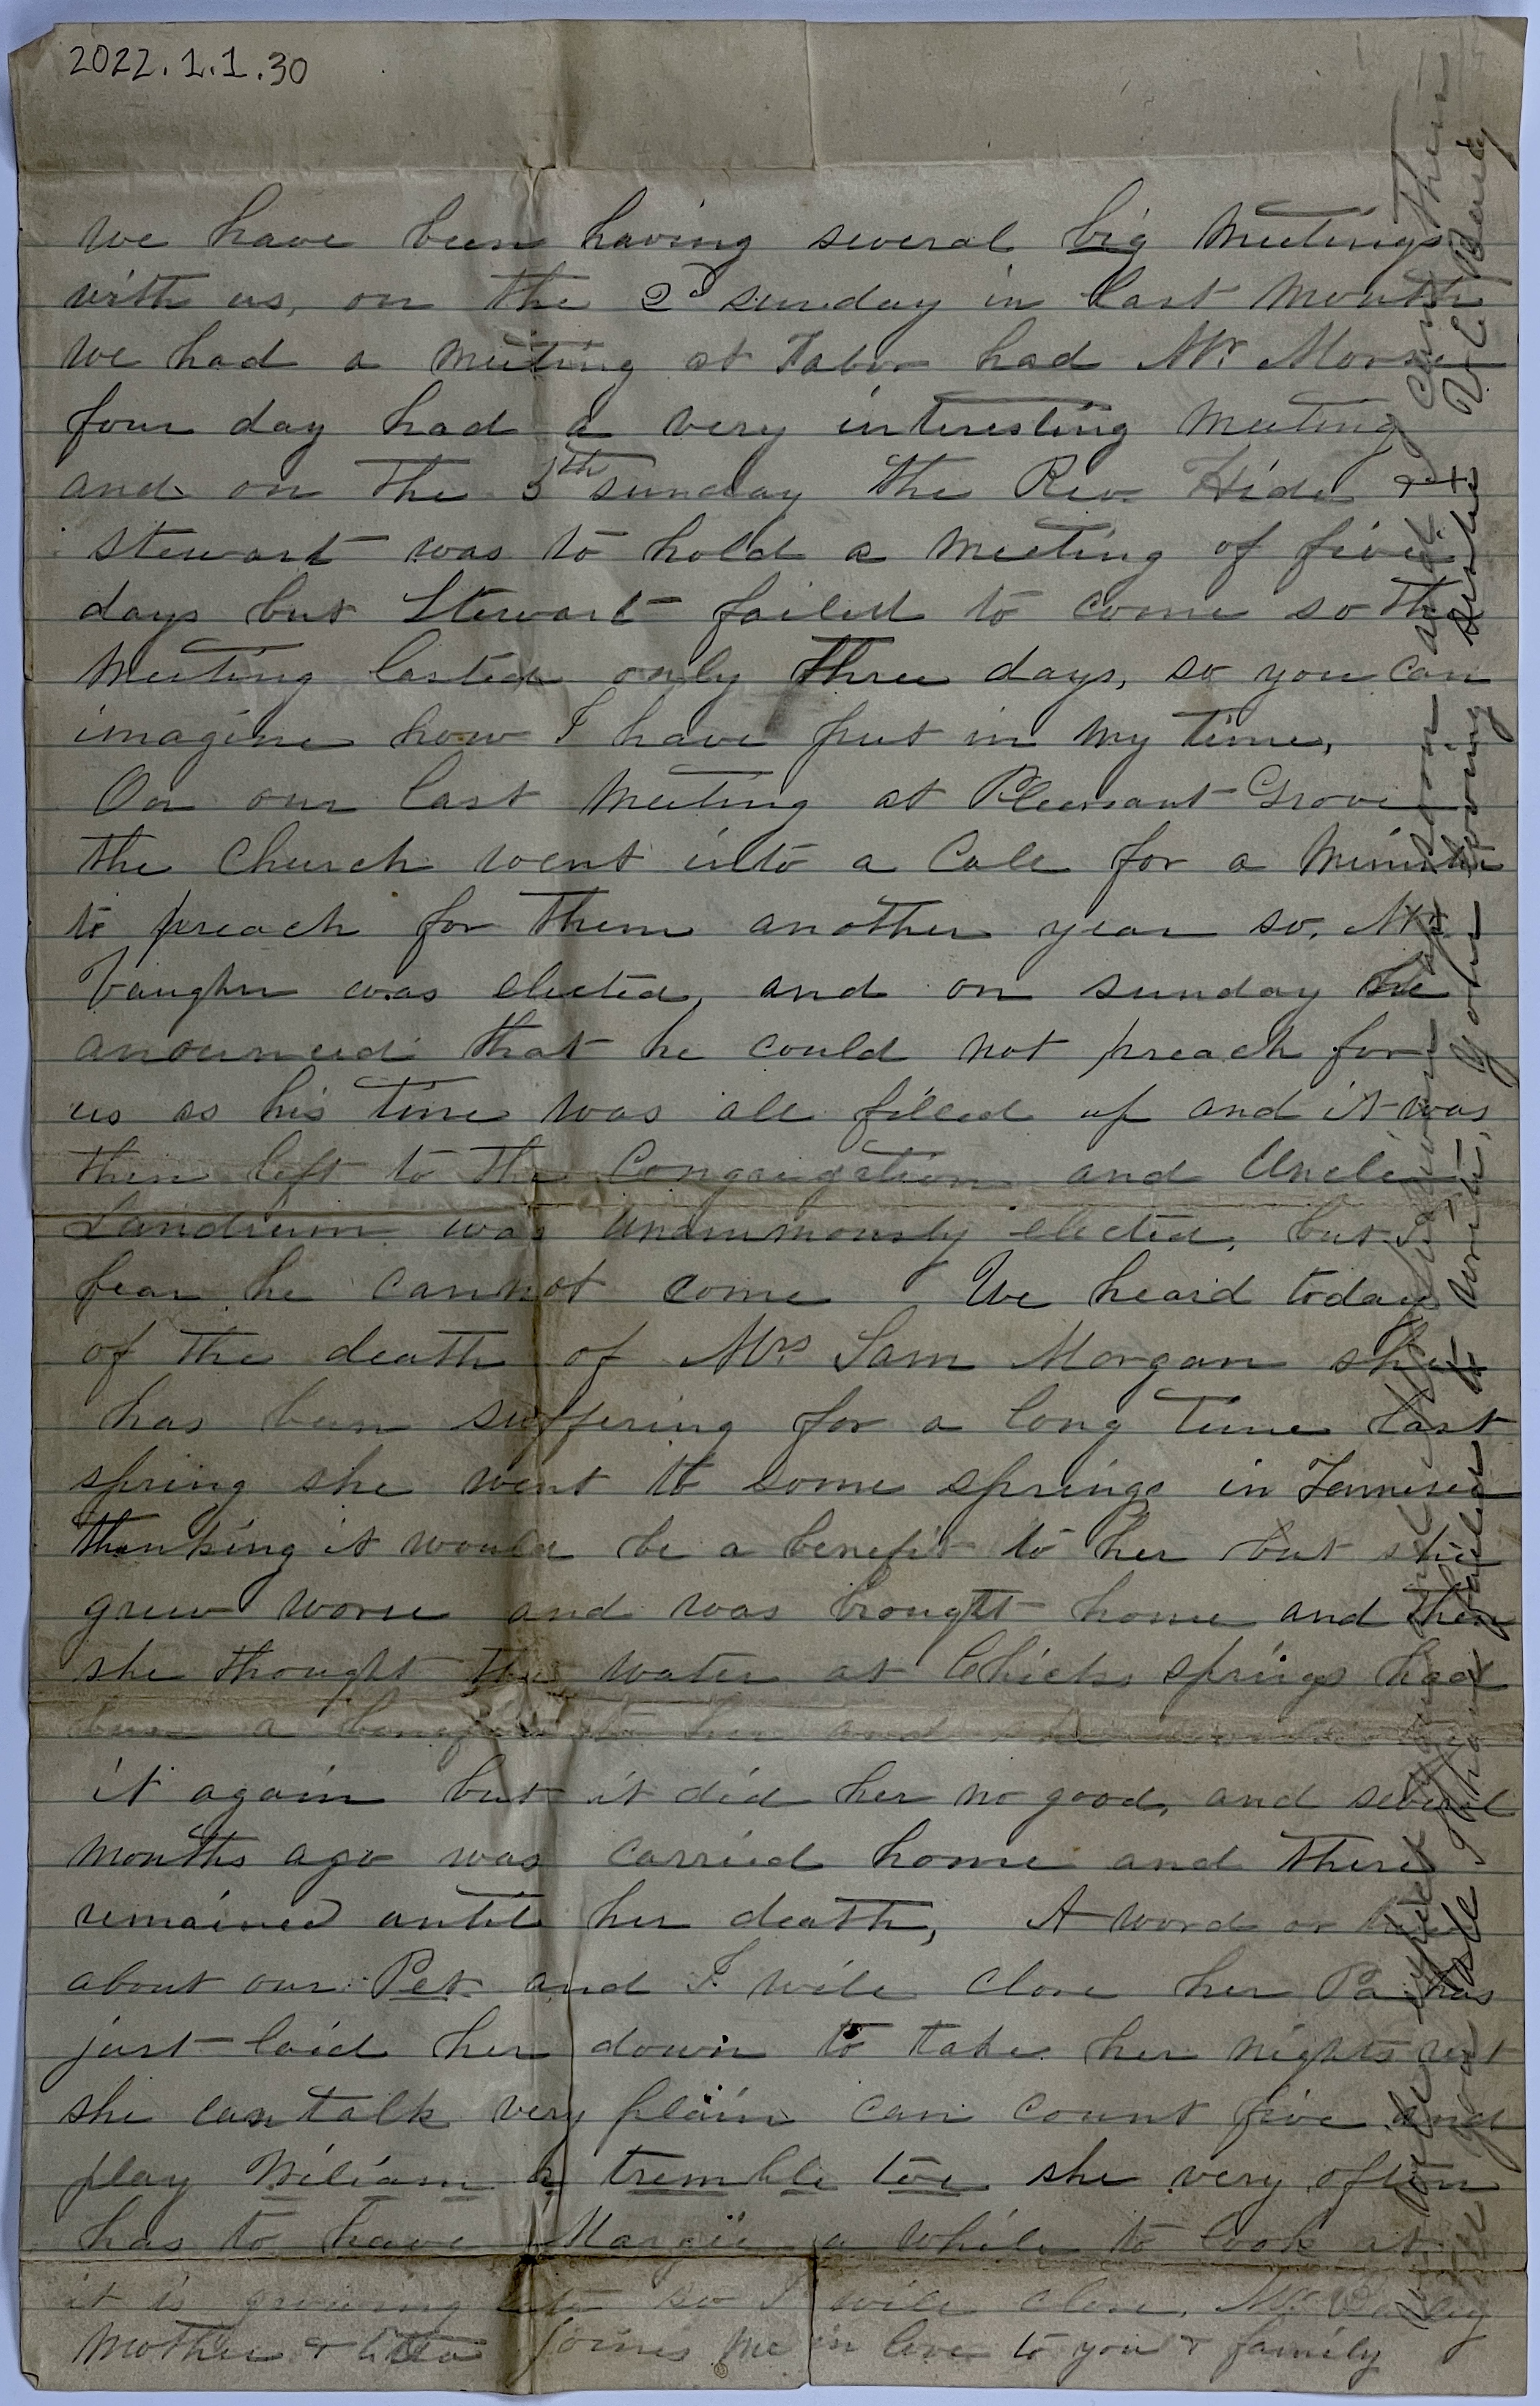 2022.1.1.30
We have been having several big meetings
with us, on the 2d sunday in last month
we had a meeting at Tabor had Mr. Morse
four day had a very interesting meeting
and on the 5th sunday the Rev. Hide &
Stewart was to hold a meeting of five
days but Stewart failed to come so the
meeting lasted only three days, so you can
imagine how I have put in my time,
On our last meeting at Pleasant Grove
the church went into a Call for a Minister
to preach for them another year so, Mr.
Vaughn was elected, and on sunday he
anounced that he could not preach for
us as his time was all filled up and it was
then left to the Congregation and Uncle
Landrum was unanimously elected, but I
fear he cannot come We heard today
of the death of Mrs Sam Morgan she
has been suffering for a long time last
spring she went to some springs in Tennesee
thinking it would be a benefit to her but she
grew worse and was brought home and then
she thought the water at Chicks springs had
been a benefit to her and she
it again but it did her no good, and several
months ago was carried home and there
remained until her death, A word or two
about our Pet and I will close her Pa has
just laid her down to take her nights rest
she can talk very plain can count five and
play Wiliam a tremble toe she very often
has to have Margie a while to look at
it is growing late so I will close,
Mother & joines me in love to you & family
soon and
you I have to write, your loving sister